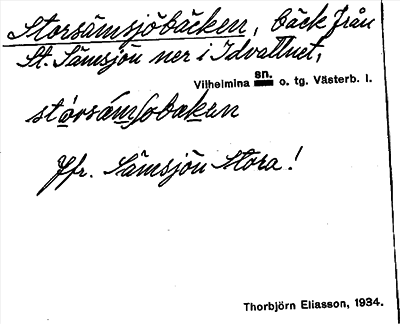 Storsåmsjöbäcken, bäck från
St. Såmsjön ner i Idvattnet,
Vilhelmina sn. o. tg. Västerb. l.
Jfr. Såmsjön Stora!
Thorbjörn Eliasson, 1934.